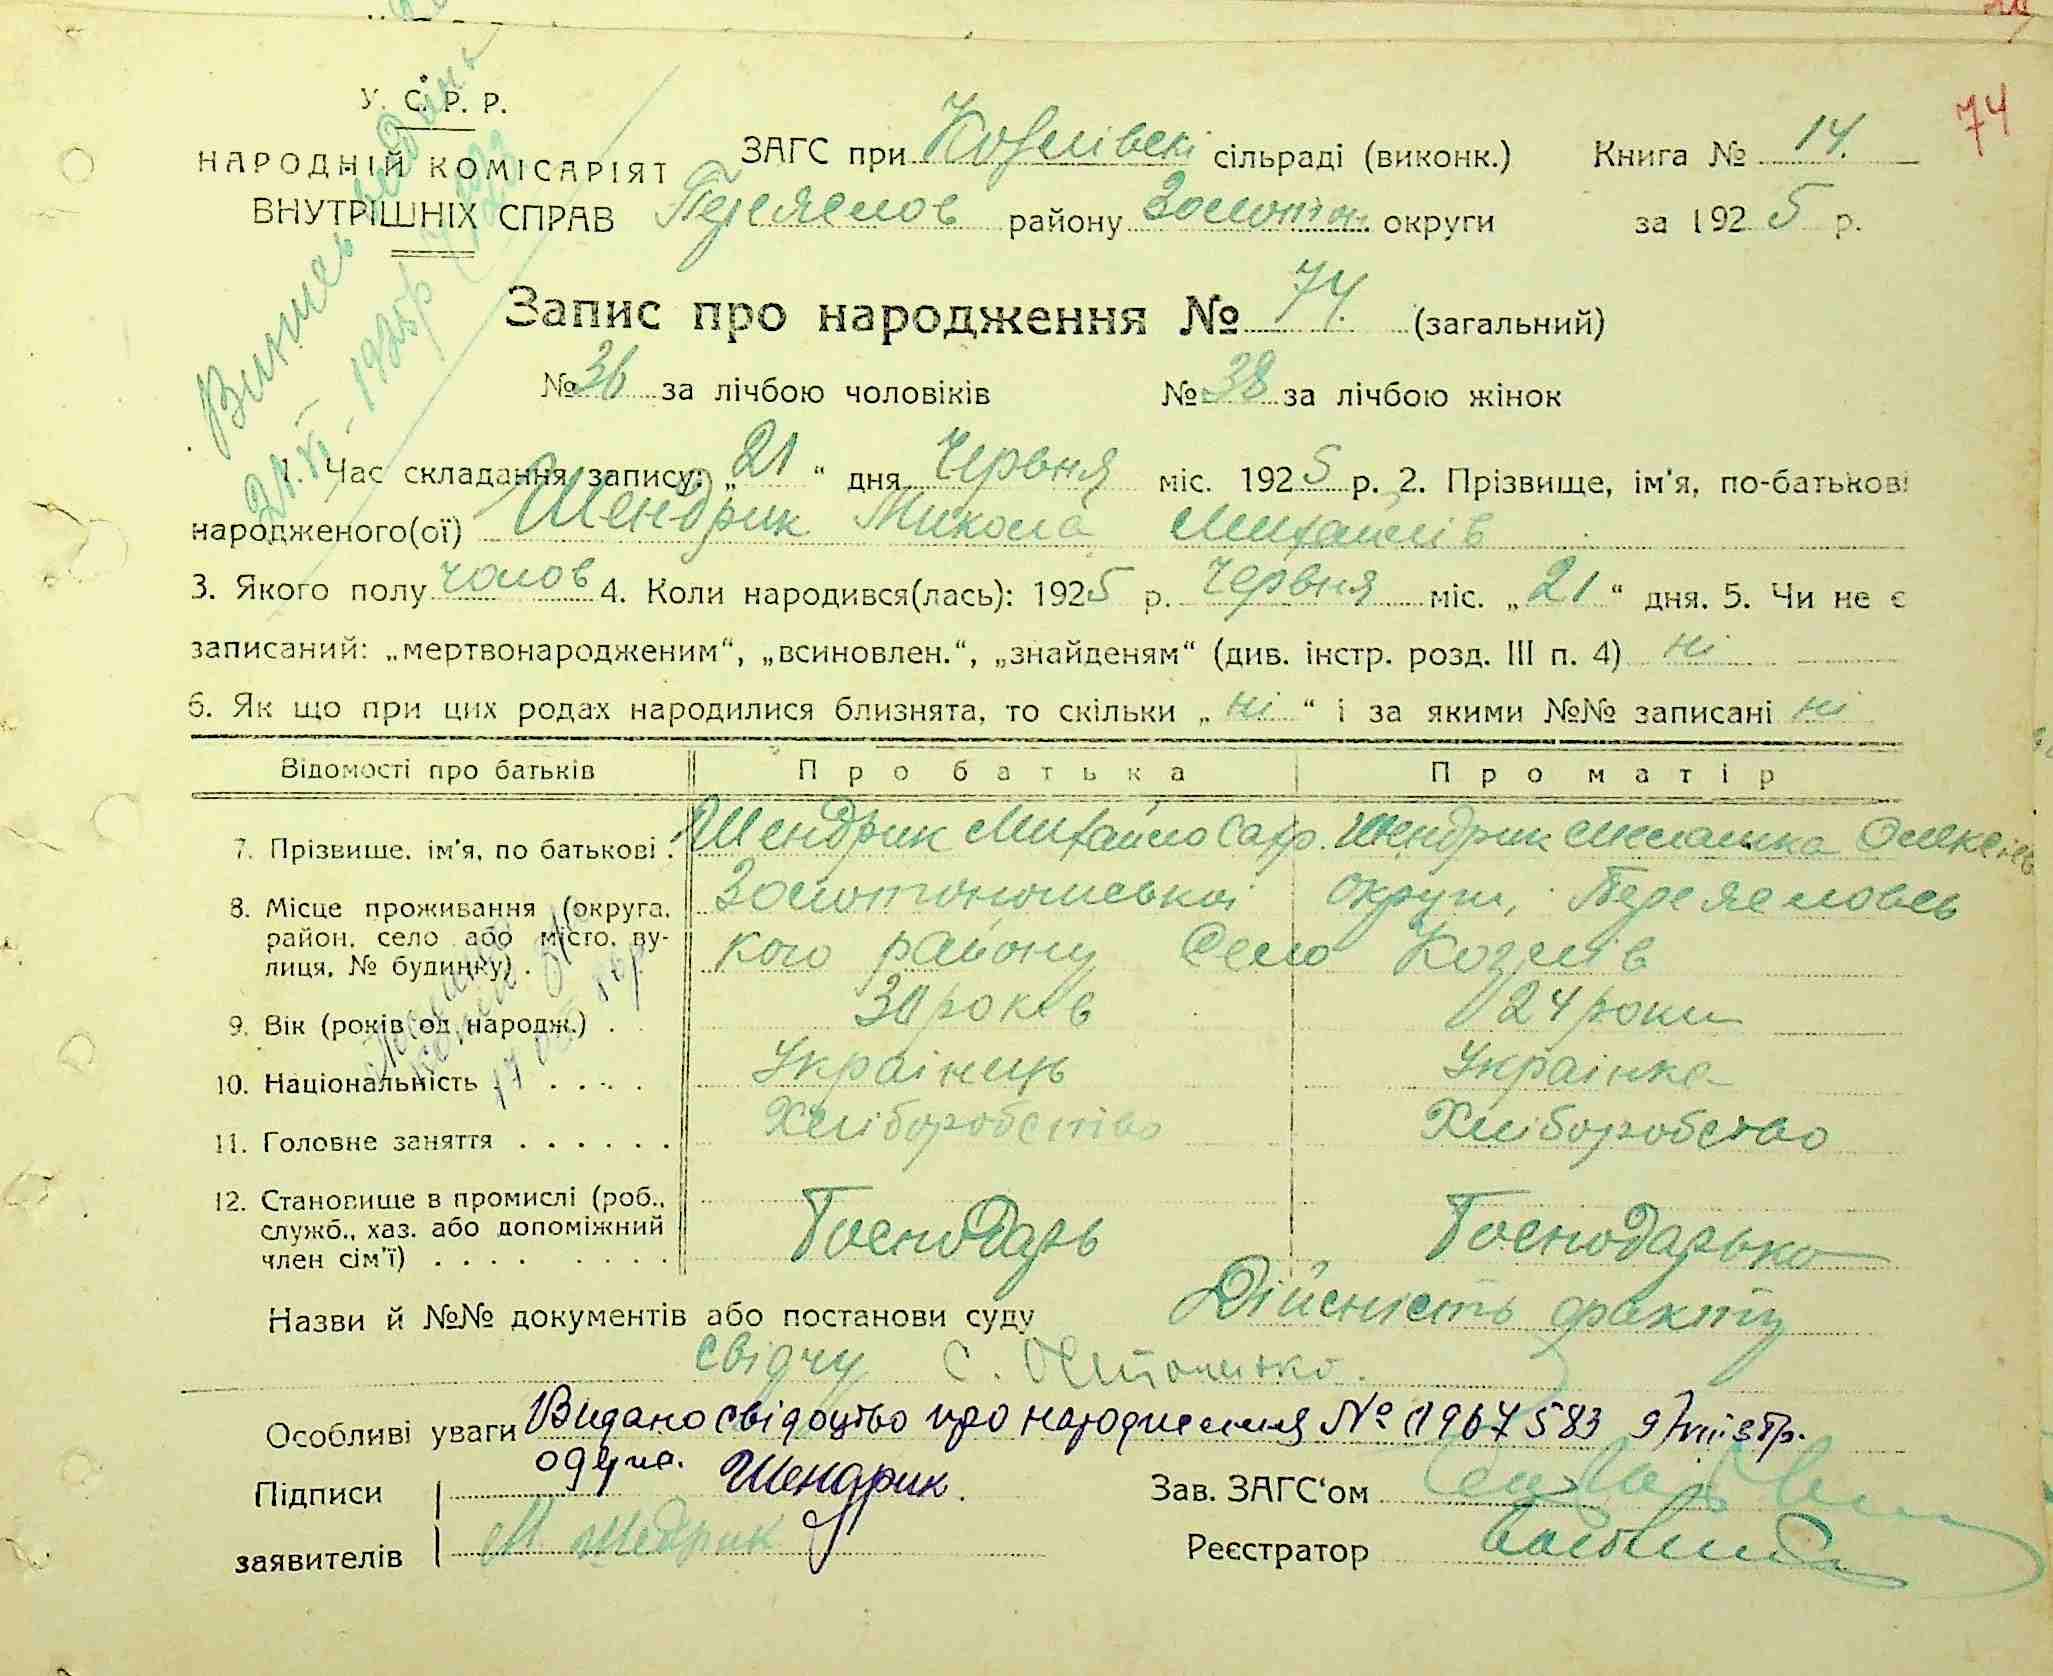 74
У. С. Р. Р.
НАРОДНІЙ КОМІСАРІЯТ
ВНУТРІШНІХ СПРАВ
ЗАГС при Козлівскі сільраді (виконк.) Книга № 14.
Переяслов району Золотон. округи за 1925 р.
Запис про народження № 74. (загальний)
№ 36 за лічбою чоловіків № 38 за лічбою жінок
1. Час складання запису: „21“ дня Червня міс. 1925 р. 2. Прізвище, ім'я, по-батькові
народженого(ої) Шендрик Микола Михайлів
3. Якого полу чолов 4. Коли народився(лась): 1925 р. Червня міс. „21“ дня. 5. Чи не є
записаний: „мертвонародженим“, „всиновлен.“, „знайденям“ (див. інстр. розд. III п. 4) ні
6. Як що при цих родах народилися близнята, то скільки „ні“ і за якими №№ записані ні
Відомості про батьків Про батька Про матір
7. Прізвище, ім'я, по батькові. Шендрик Михайло Шендрик Мелашка
8. Місце проживання (округа, район, село або місто, вулиця, № будинку). Золотоношськоі округи, Переясловсь
кого району Село Козлів
9. Вік (років од народж.) . 30 років 24 роки
10. Національність . . . . . Українець Українка
11. Головне заняття . . . . . . Хліборобство Хліборобство
12. Становище в промислі (роб., служб., хаз. або допоміжний член сім'ї) . . . . . . . . Господарь Господарько
Назви й №№ документів або постанови суду Дійсність факту
свідчу С.
Особливі уваги Видано свідоцтво про народження №
Підписи Шендрик. Зав. ЗАГС'ом
заявителів М Шедрик Реєстратор